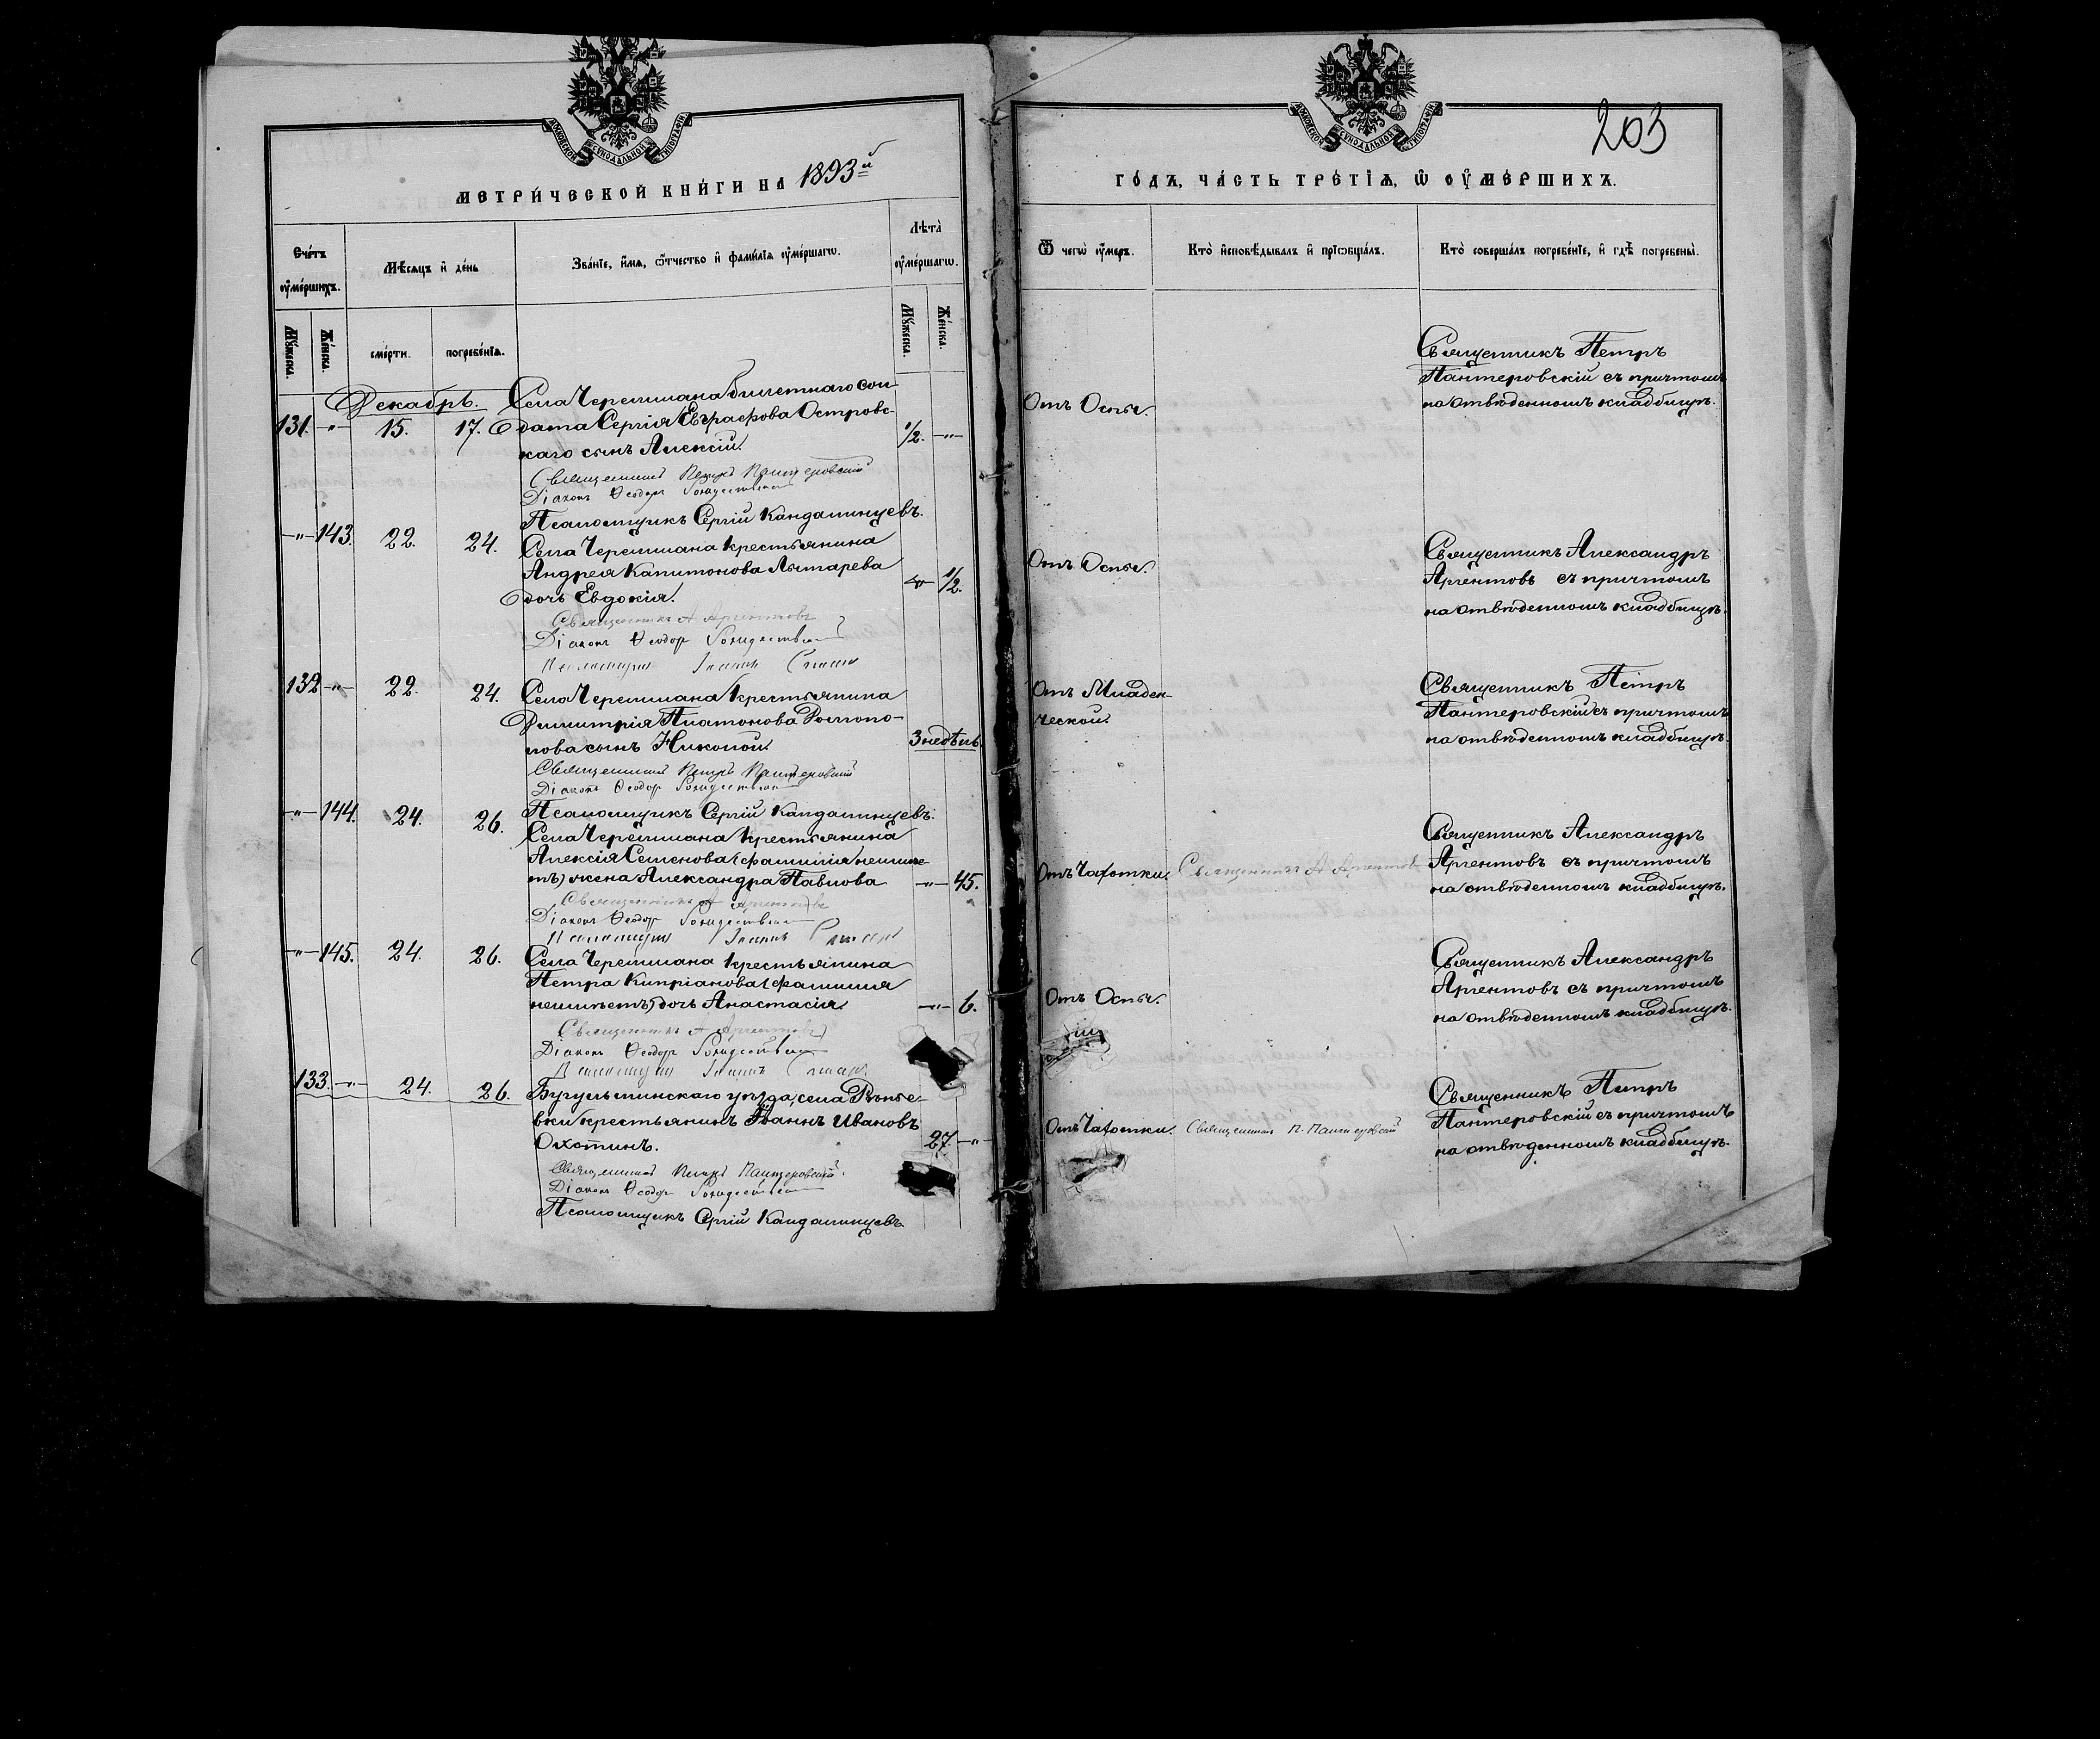 МОСКОВСКОЙ СѴНОДАЛЬНОЙ ТИПОГРАФІИ
МЕТРИ́ЧЕСКОЙ КНИ́ГИ НА 1893й
Сче́тъ ᲂу҆ме́ршихъ.
Мѣ́сяцъ и҆ де́нь
Зва́нїе, и҆́мя, ѻ҆́тчество и҆ фами́лїя ᲂу҆ме́ршагѡ.
Лѣта̀ ᲂу҆ме́ршагѡ.
Мꙋ́жеска.
Же́нска.
сме́рти.
погребе́нїя.
Мꙋ́жеска.
Же́нска.
Декабрь.
131. -"- 15. 17.
Села Черемшана билетнаго сол-
дата Сергія Евграфова Островс-
каго сынъ Алексій.
1/2. -"-
Священникъ Петръ Пантеровскій
Діаконъ Ѳеодоръ Рождественскій
Псаломщикъ Сергій Кандалинцевъ.
-"- 143. 22. 24.
Села Черемшана крестьянина
Андрея Капитонова Лытарева
дочь Евдокія.
-"- 1/2.
Священникъ А Аргентовъ
Діаконъ Ѳеодоръ Рождественскій
Псаломщикъ Іоаннъ
132 -"- 22. 24.
Села Черемшана крестьянина
Димитрія Платонова
нова сынъ Николай.
3 недѣль.
Священникъ Петръ Пантеровскій
Діаконъ Ѳеодоръ Рождественскій
Псаломщикъ Сергій Кандалинцевъ.
-"- 144. 24. 26.
Села Черемшана крестьянина
Алексія Семенова (фамиліи неимѣе-
тъ) жена Александра Павлова
-"- 45.
Священникъ А Аргентовъ
Діаконъ Ѳеодоръ Рождественскій
Псаломщикъ Іоаннъ
-"- 145. 24. 26.
Села Черемшана крестьянина
Петра Кипріанова (фамиліи
неимѣетъ) дочь Анастасія.
-"- 6.
Священникъ А Аргентовъ
Діаконъ Ѳеодоръ Рождественскій
Псаломщикъ Іоаннъ
133. -"- 24. 26.
Бугульминскаго уѣзда, села Рѣпье-
вки крестьянинъ Іоаннъ Ивановъ
Охотинъ.
27. -"-
Священникъ Петръ Пантеровскій.
Діаконъ Ѳеодоръ Рождественскій
Псаломщикъ Сергій Кандалинцевъ
МОСКОВСКОЙ СѴНОДАЛЬНОЙ ТИПОГРАФІИ
203
ГО́ДЪ, ЧА́СТЬ ТРЕ́ТІѦ, Ѡ҆ ОУ҆МЕ́РШИХЪ.
Ѿ чегѡ̀ ᲂу҆́меръ.
Кто̀ и҆сповѣ́дывалъ и҆ прїѡбща́лъ.
Кто̀ соверша́лъ погребе́нїе, и҆ гдѣ̀ погребены̀.
Отъ Оспы.
Священникъ Петръ
Пантеровскій съ причтомъ
на отвѣденномъ кладбищѣ.
Отъ Оспы.
Священникъ Александръ
Аргентовъ съ причтомъ
на отвѣденномъ кладбищѣ.
Отъ Младен-
ческой.
Священникъ Петръ
Пантеровскій съ причтомъ
на отвѣденномъ кладбищѣ.
Отъ Чахотки.
Священникъ А Аргентовъ
Священникъ Александръ
Аргентовъ съ причтомъ
на отвѣденномъ кладбищѣ.
Отъ Оспы.
Священникъ Александръ
Аргентовъ съ причтомъ
на отвѣденномъ кладбищѣ.
Отъ Чахотки.
Священникъ П. Пантеровскій
Священникъ Петръ
Пантеровскій съ причтомъ
на отвѣденномъ кладбищѣ.